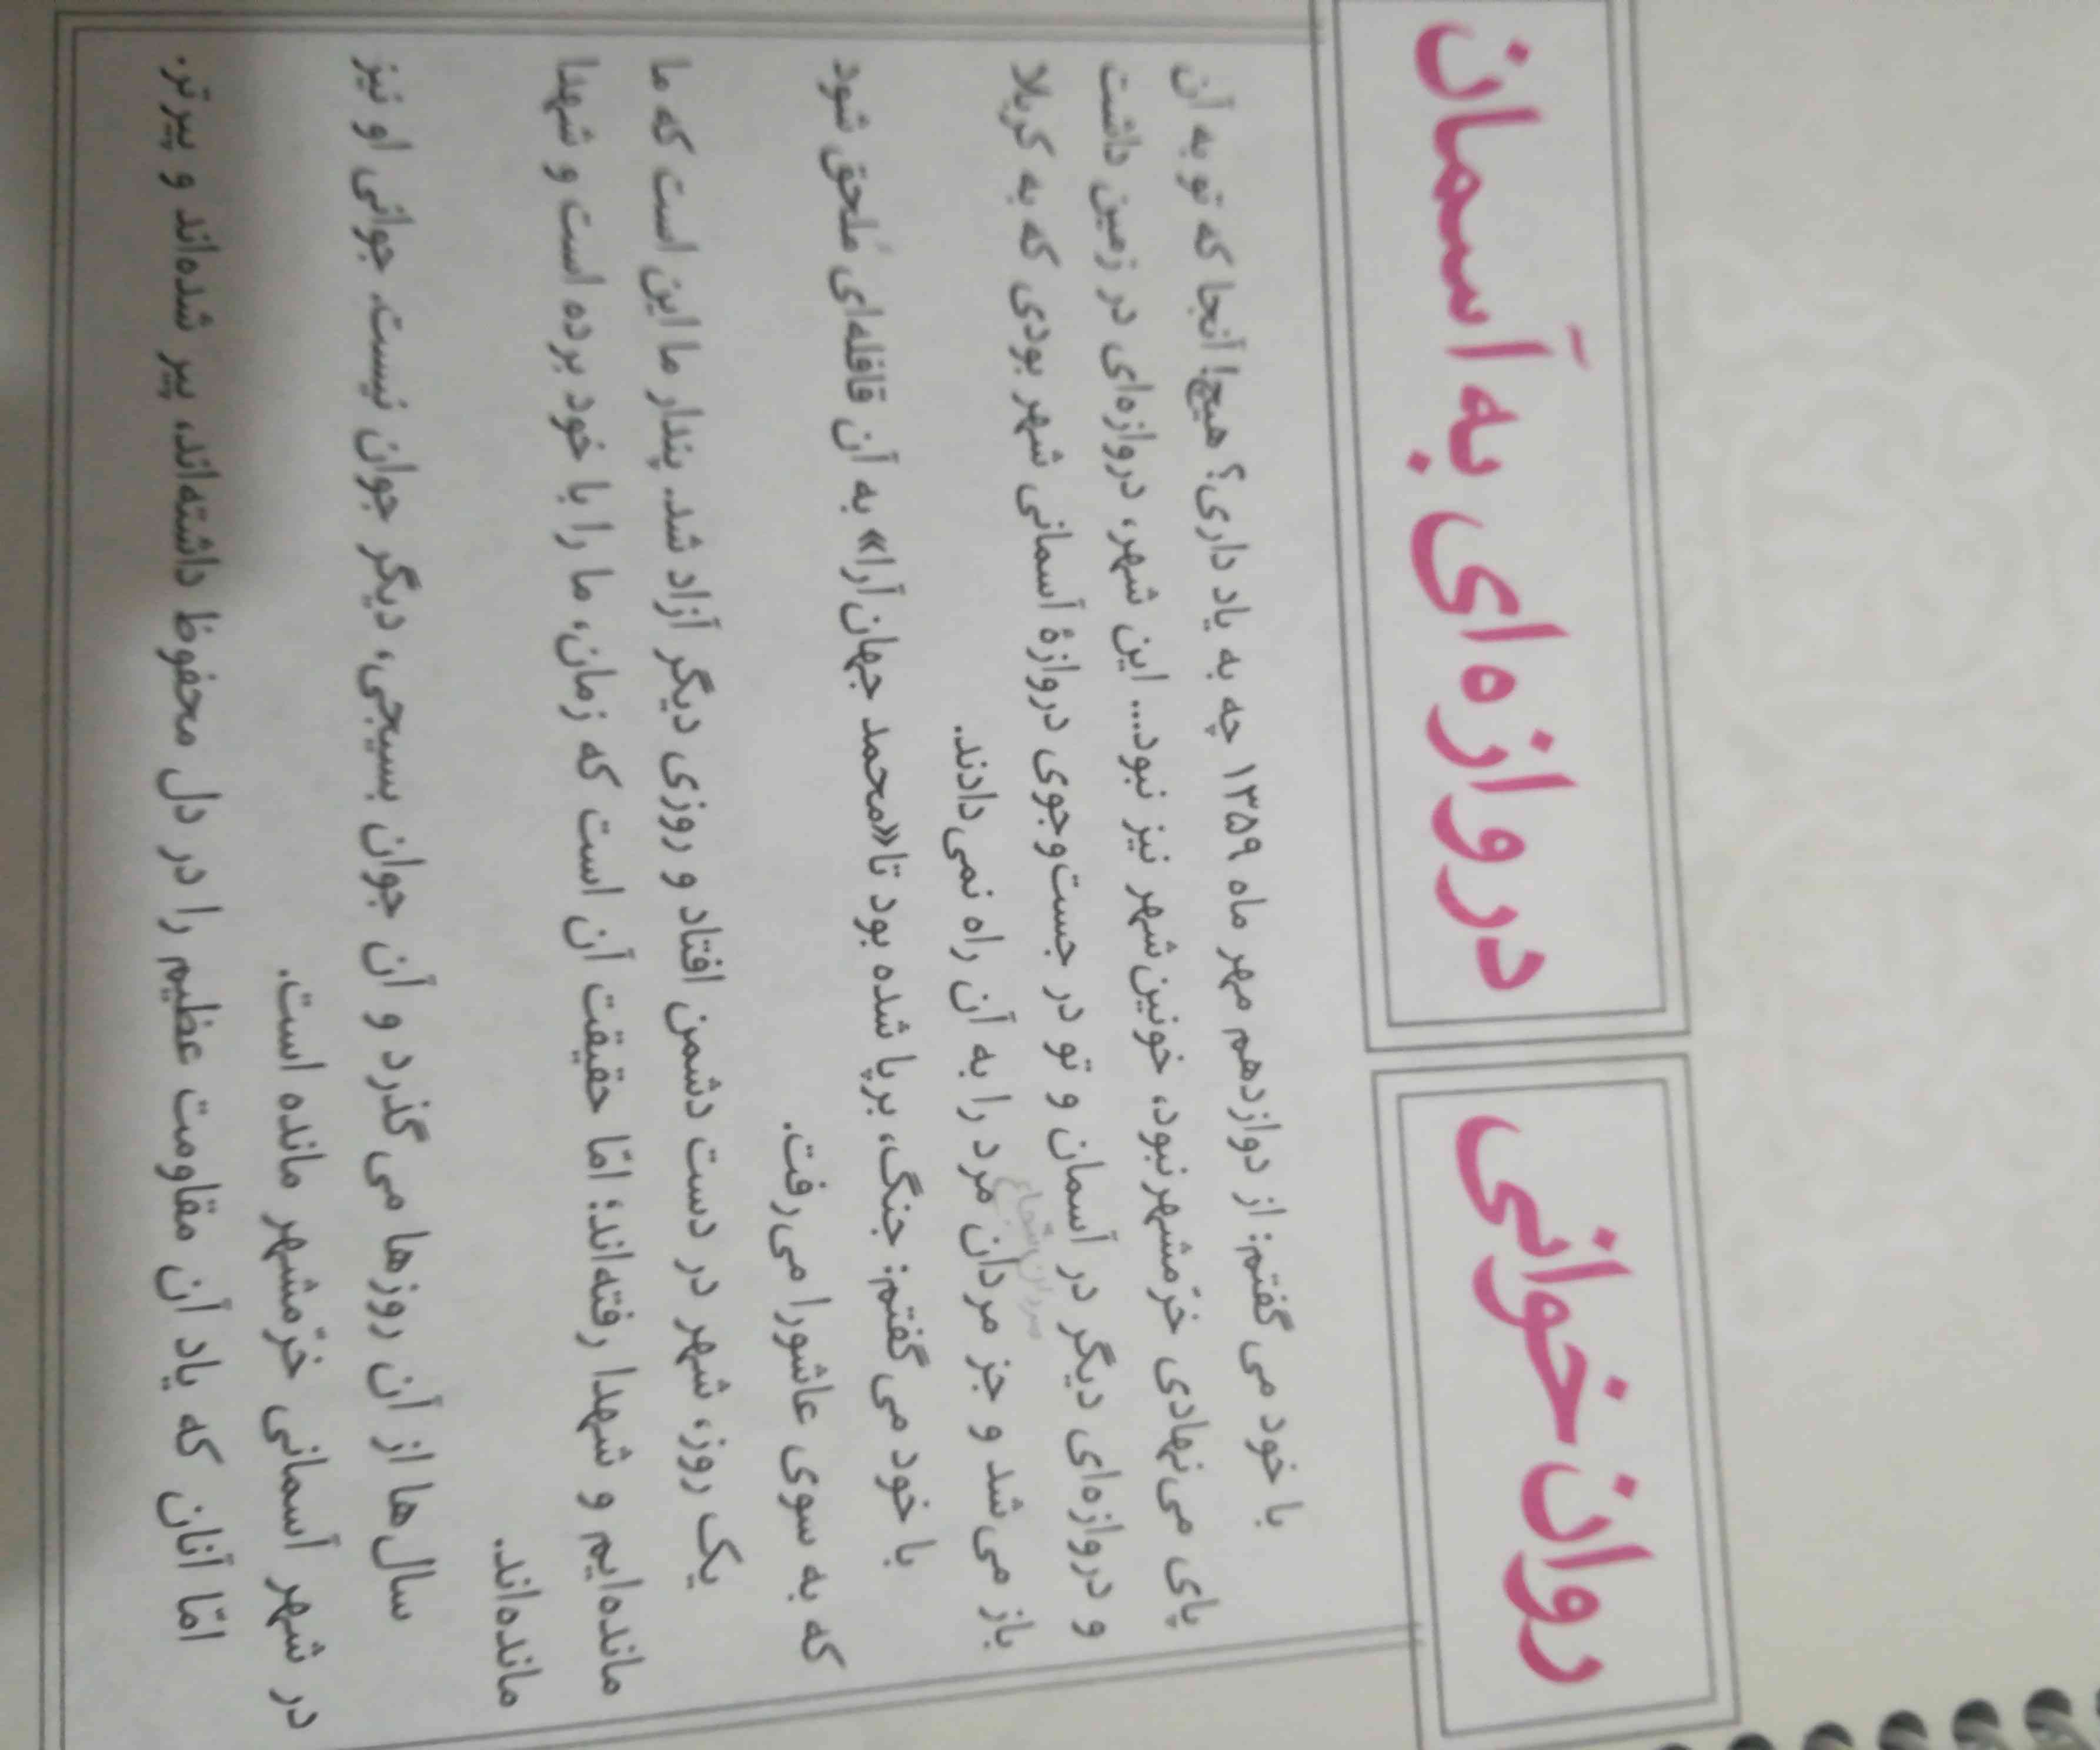 روان‌خوانی
دروازه‌ای به آسمان
با خود می‌گفتم: از دوازدهم مهر ماه ۱۳۵۹ چه به یاد داری؟ هیچ! آنجا که تو به آن
پای می‌نهادی خرّمشهر نبود، خونین‌شهر نیز نبود... این شهر، دروازه‌ای در زمین داشت
و دروازه‌ای دیگر در آسمان و تو در جست‌وجوی دروازهٔ آسمانی شهر بودی که به کربلا
باز می‌شد و جز مردان مرد را به آن راه نمی‌دادند.
با خود می‌گفتم: جنگ، برپا شده بود تا «محمد جهان‌آرا» به آن قافله‌ای مُلحق شود
که به سوی عاشورا می‌رفت.
یک روز، شهر در دست دشمن افتاد و روزی دیگر آزاد شد. پندار ما این است که ما
مانده‌ایم و شهدا رفته‌اند؛ امّا حقیقت آن است که زمان، ما را با خود برده است و شهدا
مانده‌اند.
سال‌ها از آن روزها می‌گذرد و آن جوان بسیجی، دیگر جوان نیست. جوانی او نیز
در شهر آسمانی خرّمشهر مانده است.
امّا آنان که یاد آن مقاومت عظیم را در دل محفوظ داشته‌اند، پیر شده‌اند و پیرتر.